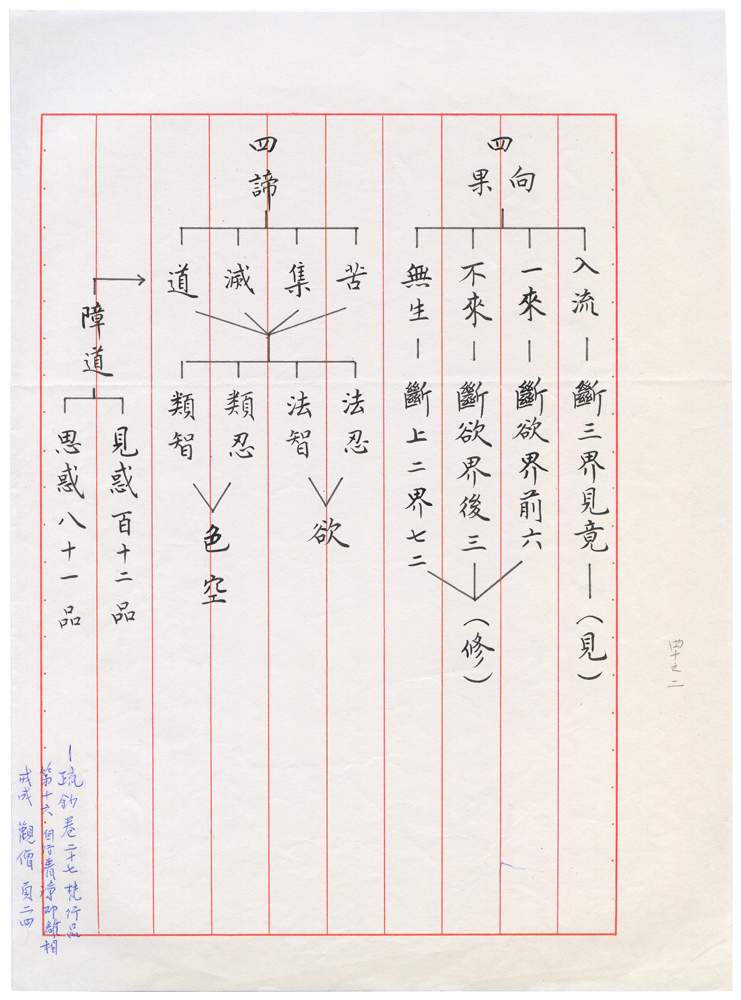 四
果向
入流 — 斷三界見竟 — (見)
一來 — 斷欲界前六
不來 — 斷欲界後三
無生 — 斷上二界七二
(修)
四諦
苦
集
滅
道
法忍
法智
類忍
類智
欲
色空
障道
見惑百十二品
思惑八十一品
四十之二
疏鈔卷二十七梵行品
第十六
戒成 觀僧 頁二四